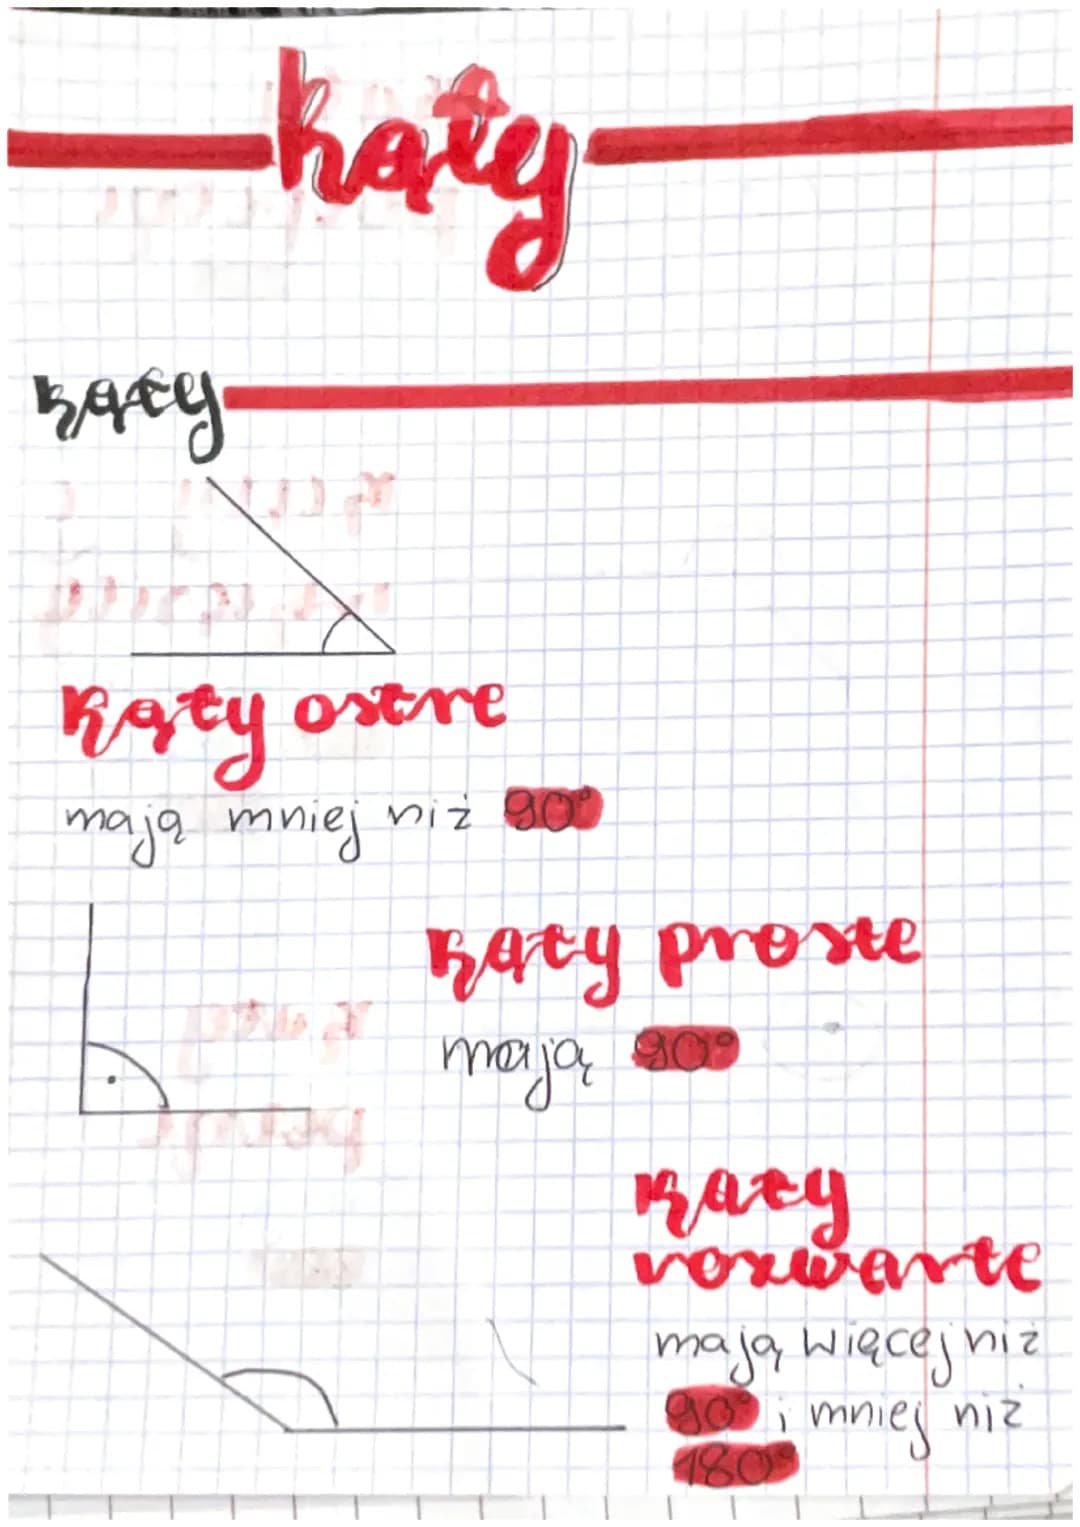 kąty
kąty
kąty ostre
mają mniej niż 90°
kąty proste
mają 90°
kąty
rozwarte
mają więcej niż
90° i mniej niż
180°